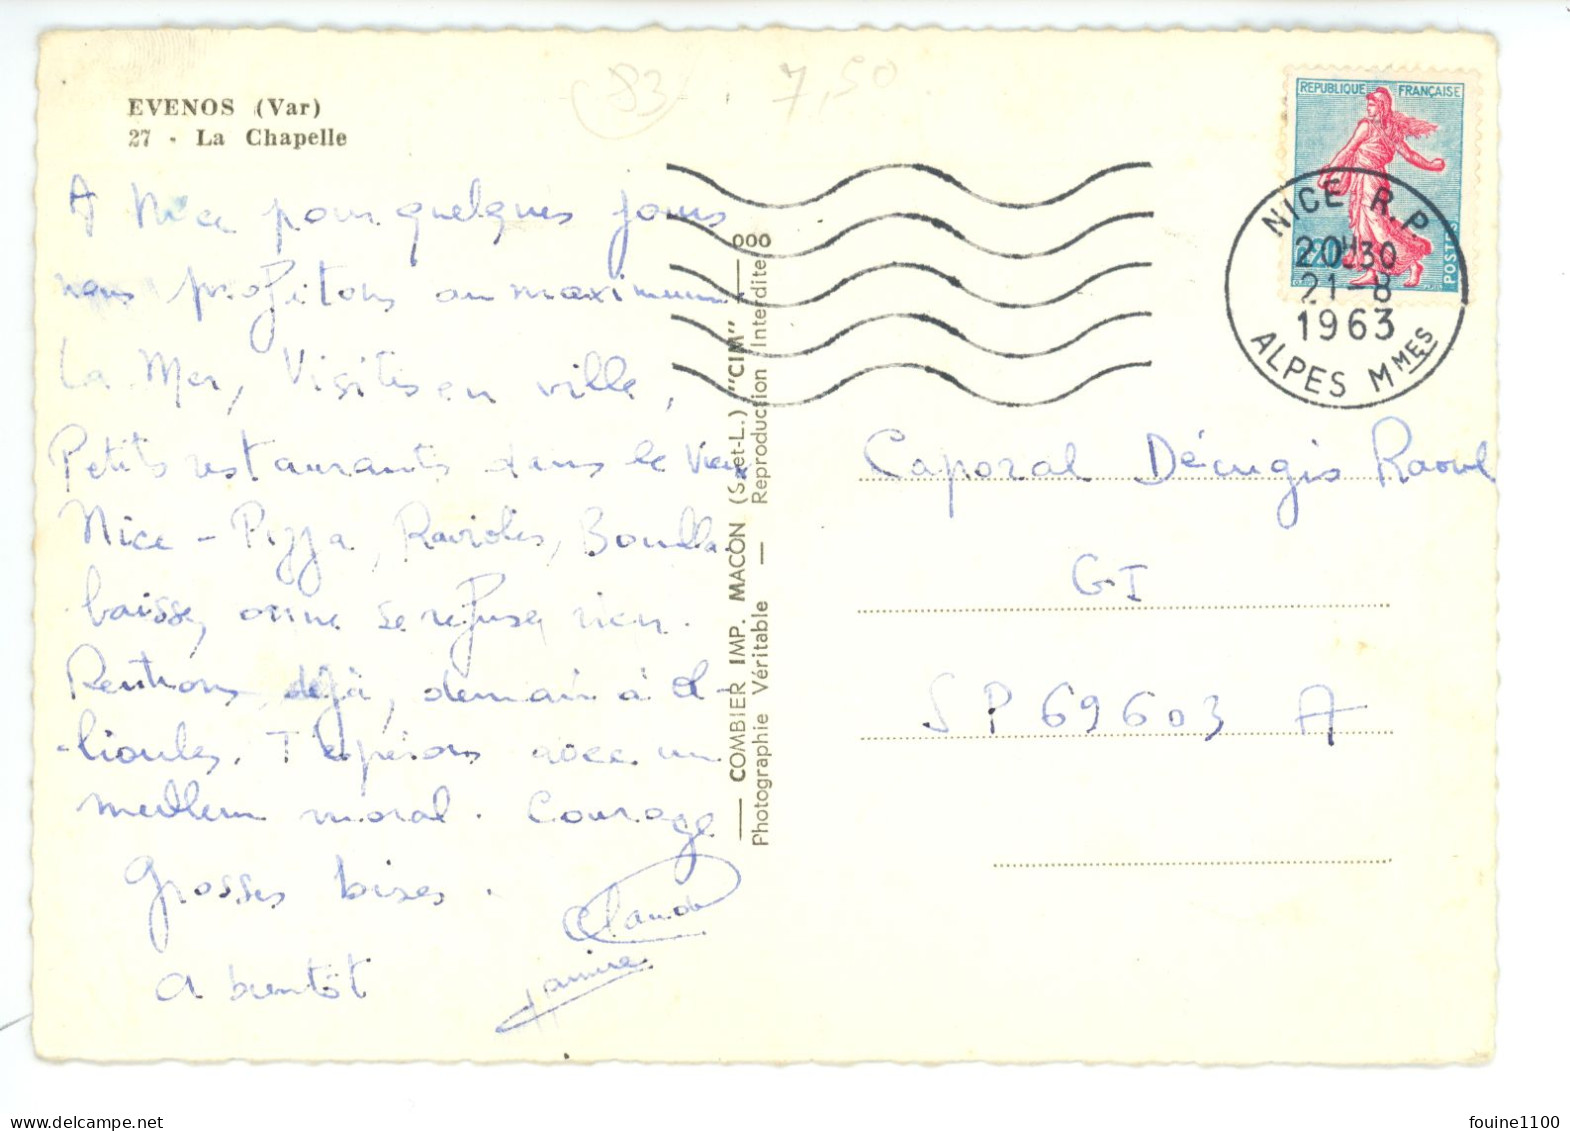 EVENOS (Var)
27 - La Chapelle
83
7,50
A Nice pour quelques jours
nous profitons au maximum
La Mer, Visites en ville,
Petits restaurants dans le Vieux
Nice - Pizza, Ravioles, Bouilla
baisse, on ne se refuse rien.
Rentrons déjà, demain à Ol-
-lioules. T'espérons avec un
meilleur moral. Courage
Grosses bises.
Claude
A bientôt
COMBIER IMP. MACON (S.-et-L.) "CIM"
Photographie Véritable — Reproduction Interdite
REPUBLIQUE FRANÇAISE
POSTES
NICE R.P.
20H30
21-8
1963
ALPES MMES
Caporal Décugis Raoul
GI
SP 69603 A
delcampe.net
fouine1100